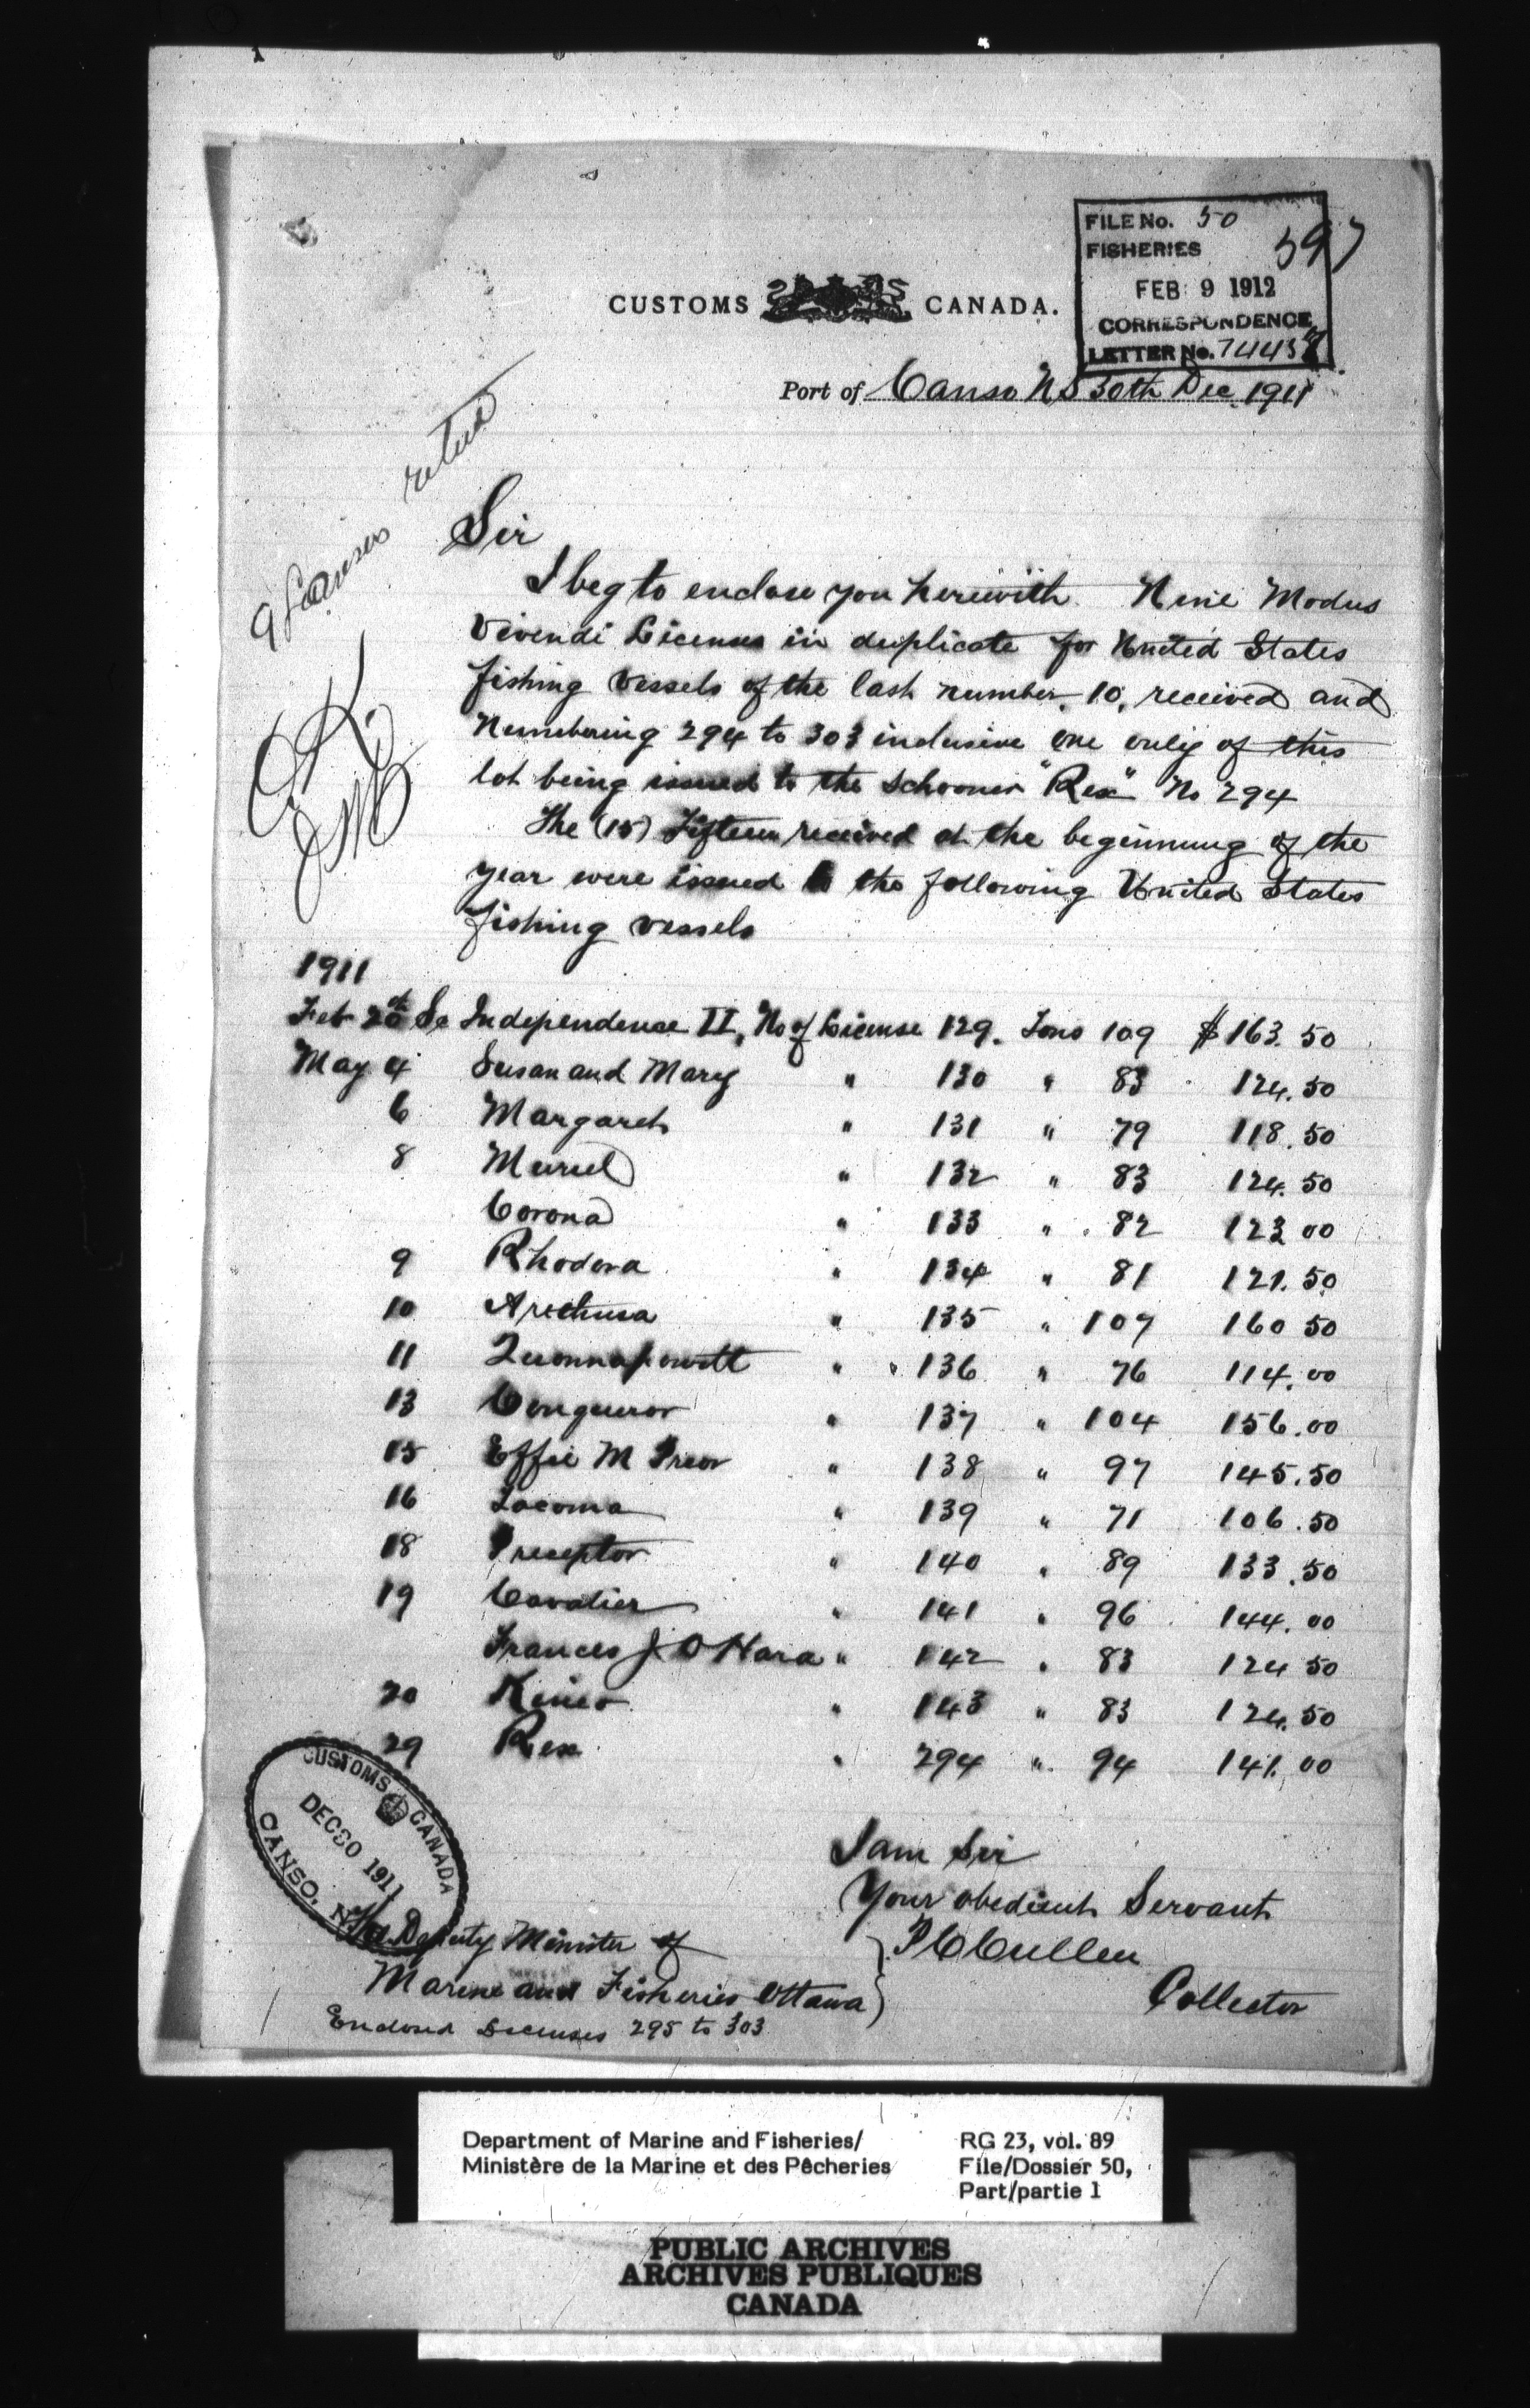 FILE No. 50
FISHERIES 597
FEB 9 1912
CORRESPONDENCE
LETTER No. 74438
CUSTOMS CANADA.
Port of Canso NS 30th Dec. 1911
9 Licenses retud
OK
Sir
I beg to enclose you herewith Nine Modus
Vivendi Licenses in duplicate for United States
fishing vessels of the last number, 10, received and
Numbering 294 to 303 inclusive one only of this
lot being issued to the schooner "Rex" No 294
The (15) Fifteen received at the beginning of the
year were issued to the following United States
fishing vessels
1911
Feb 20 Sc Independence II, No of License 129. Tons 109 $163.50
May 4 Susan and Mary " 130 " 83 124.50
6 Margaret " 131 " 79 118.50
8 Muriel " 132 " 83 124.50
Corona " 133 " 82 123 00
9 Rhodora " 134 " 81 121.50
10 Arethusa " 135 " 107 160 50
11 Quonnapowitt " 136 " 76 114.00
13 Conqueror " 137 " 104 156.00
15 Effie M Prior " 138 " 97 145.50
16 Tacoma " 139 " 71 106.50
18 Preceptor " 140 " 89 133.50
19 Cavalier " 141 " 96 144.00
Frances J O Hara " 142 " 83 124 50
20 Kineo " 143 " 83 124.50
29 Rex " 294 " 94 141.00
CUSTOMS CANADA
DEC 30 1911
CANSO, N
I am Sir
Your obedient Servant
P C Cullen
Collector
The Deputy Minister of
Marine and Fisheries Ottawa
Enclosed Licenses 295 to 303
Department of Marine and Fisheries/
Ministère de la Marine et des Pêcheries
RG 23, vol. 89
File/Dossier 50,
Part/partie 1
PUBLIC ARCHIVES
ARCHIVES PUBLIQUES
CANADA